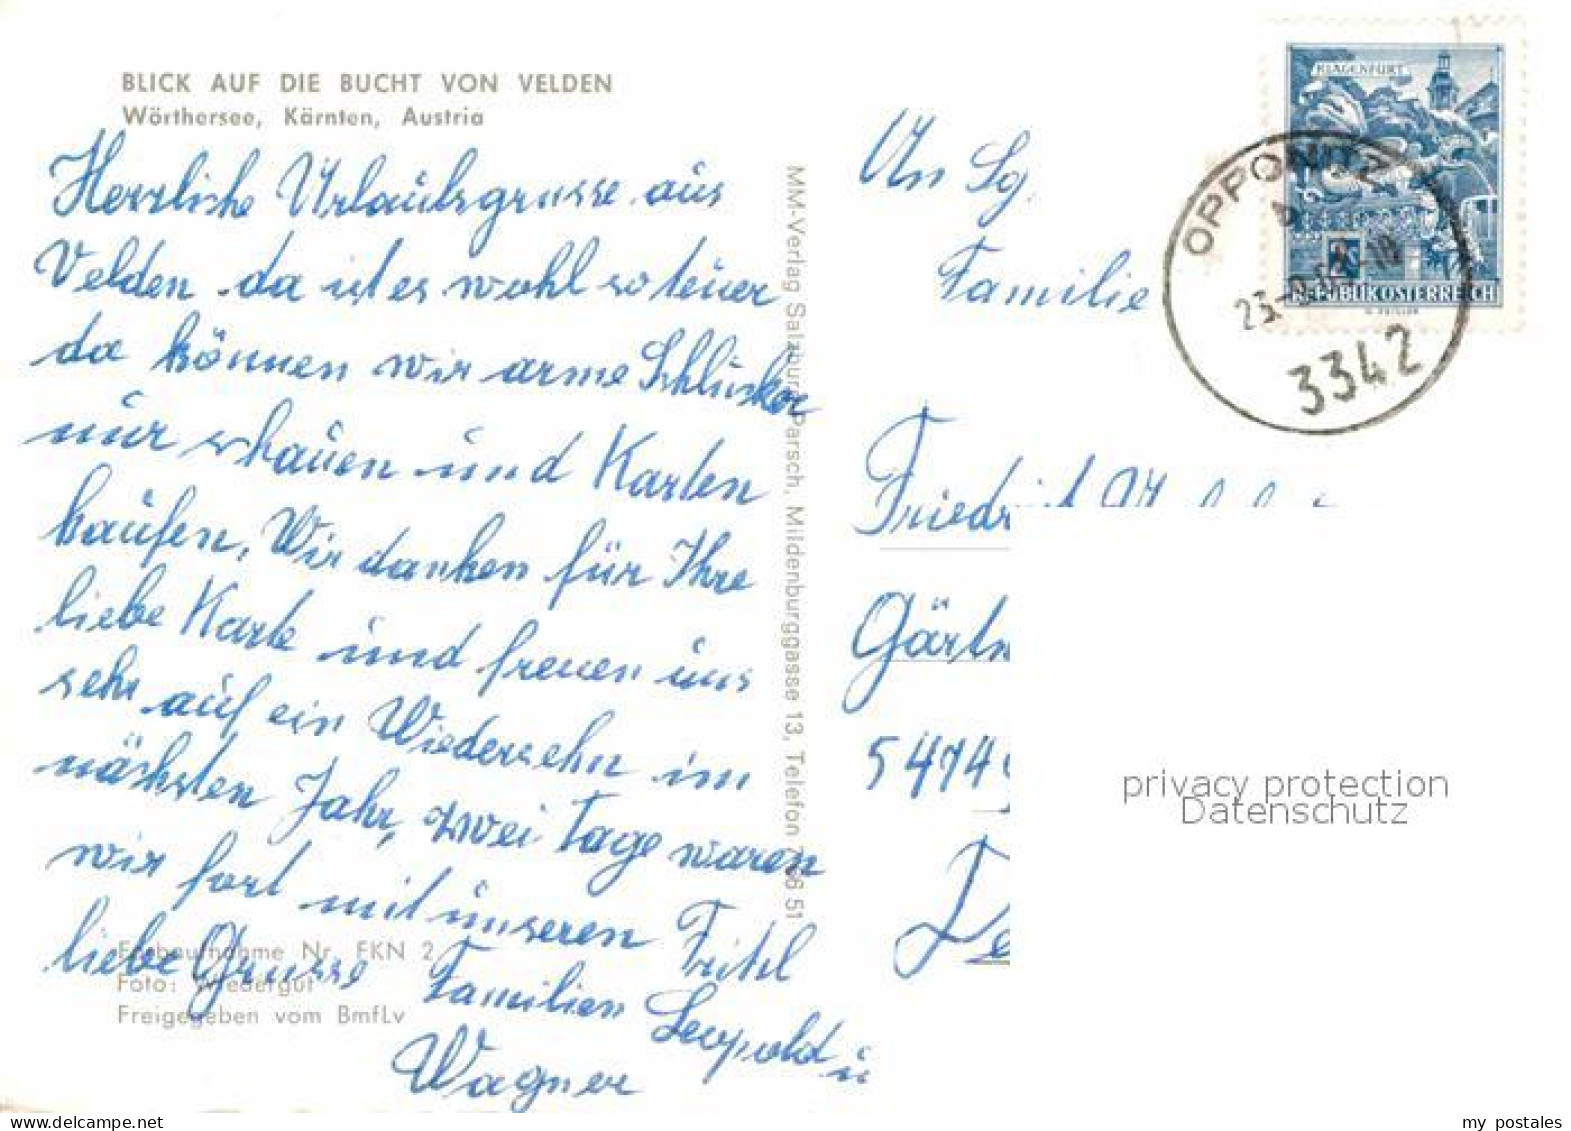 BLICK AUF DIE BUCHT VON VELDEN
Wörthersee, Kärnten, Austria
Herrliche Urlaubsgrusse aus
Velden da ist es wohl so teuer
da können wir arme Schlucker
nur schauen und Karten
kaufen, Wir danken für Ihre
liebe Karte und freuen uns
sehr auf ein Wiedersehn im
nächsten Jahr, zwei Tage waren
wir fort mit unseren Fritzl
liebe Grusse Familien Leopold u
Wagner
Farbaufnahme Nr. FKN 2
Foto: Wiedergut
Freigegeben vom BmfLv
MM-Verlag Salzburg-Parsch, Mildenburggasse 13, Telefon 51
An Sg.
Familie
Friedr
Gärtn
5474
KLAGENFURT
REPUBLIK OSTERREICH
OPPONITZ
3342
privacy protection
Datenschutz
my postales